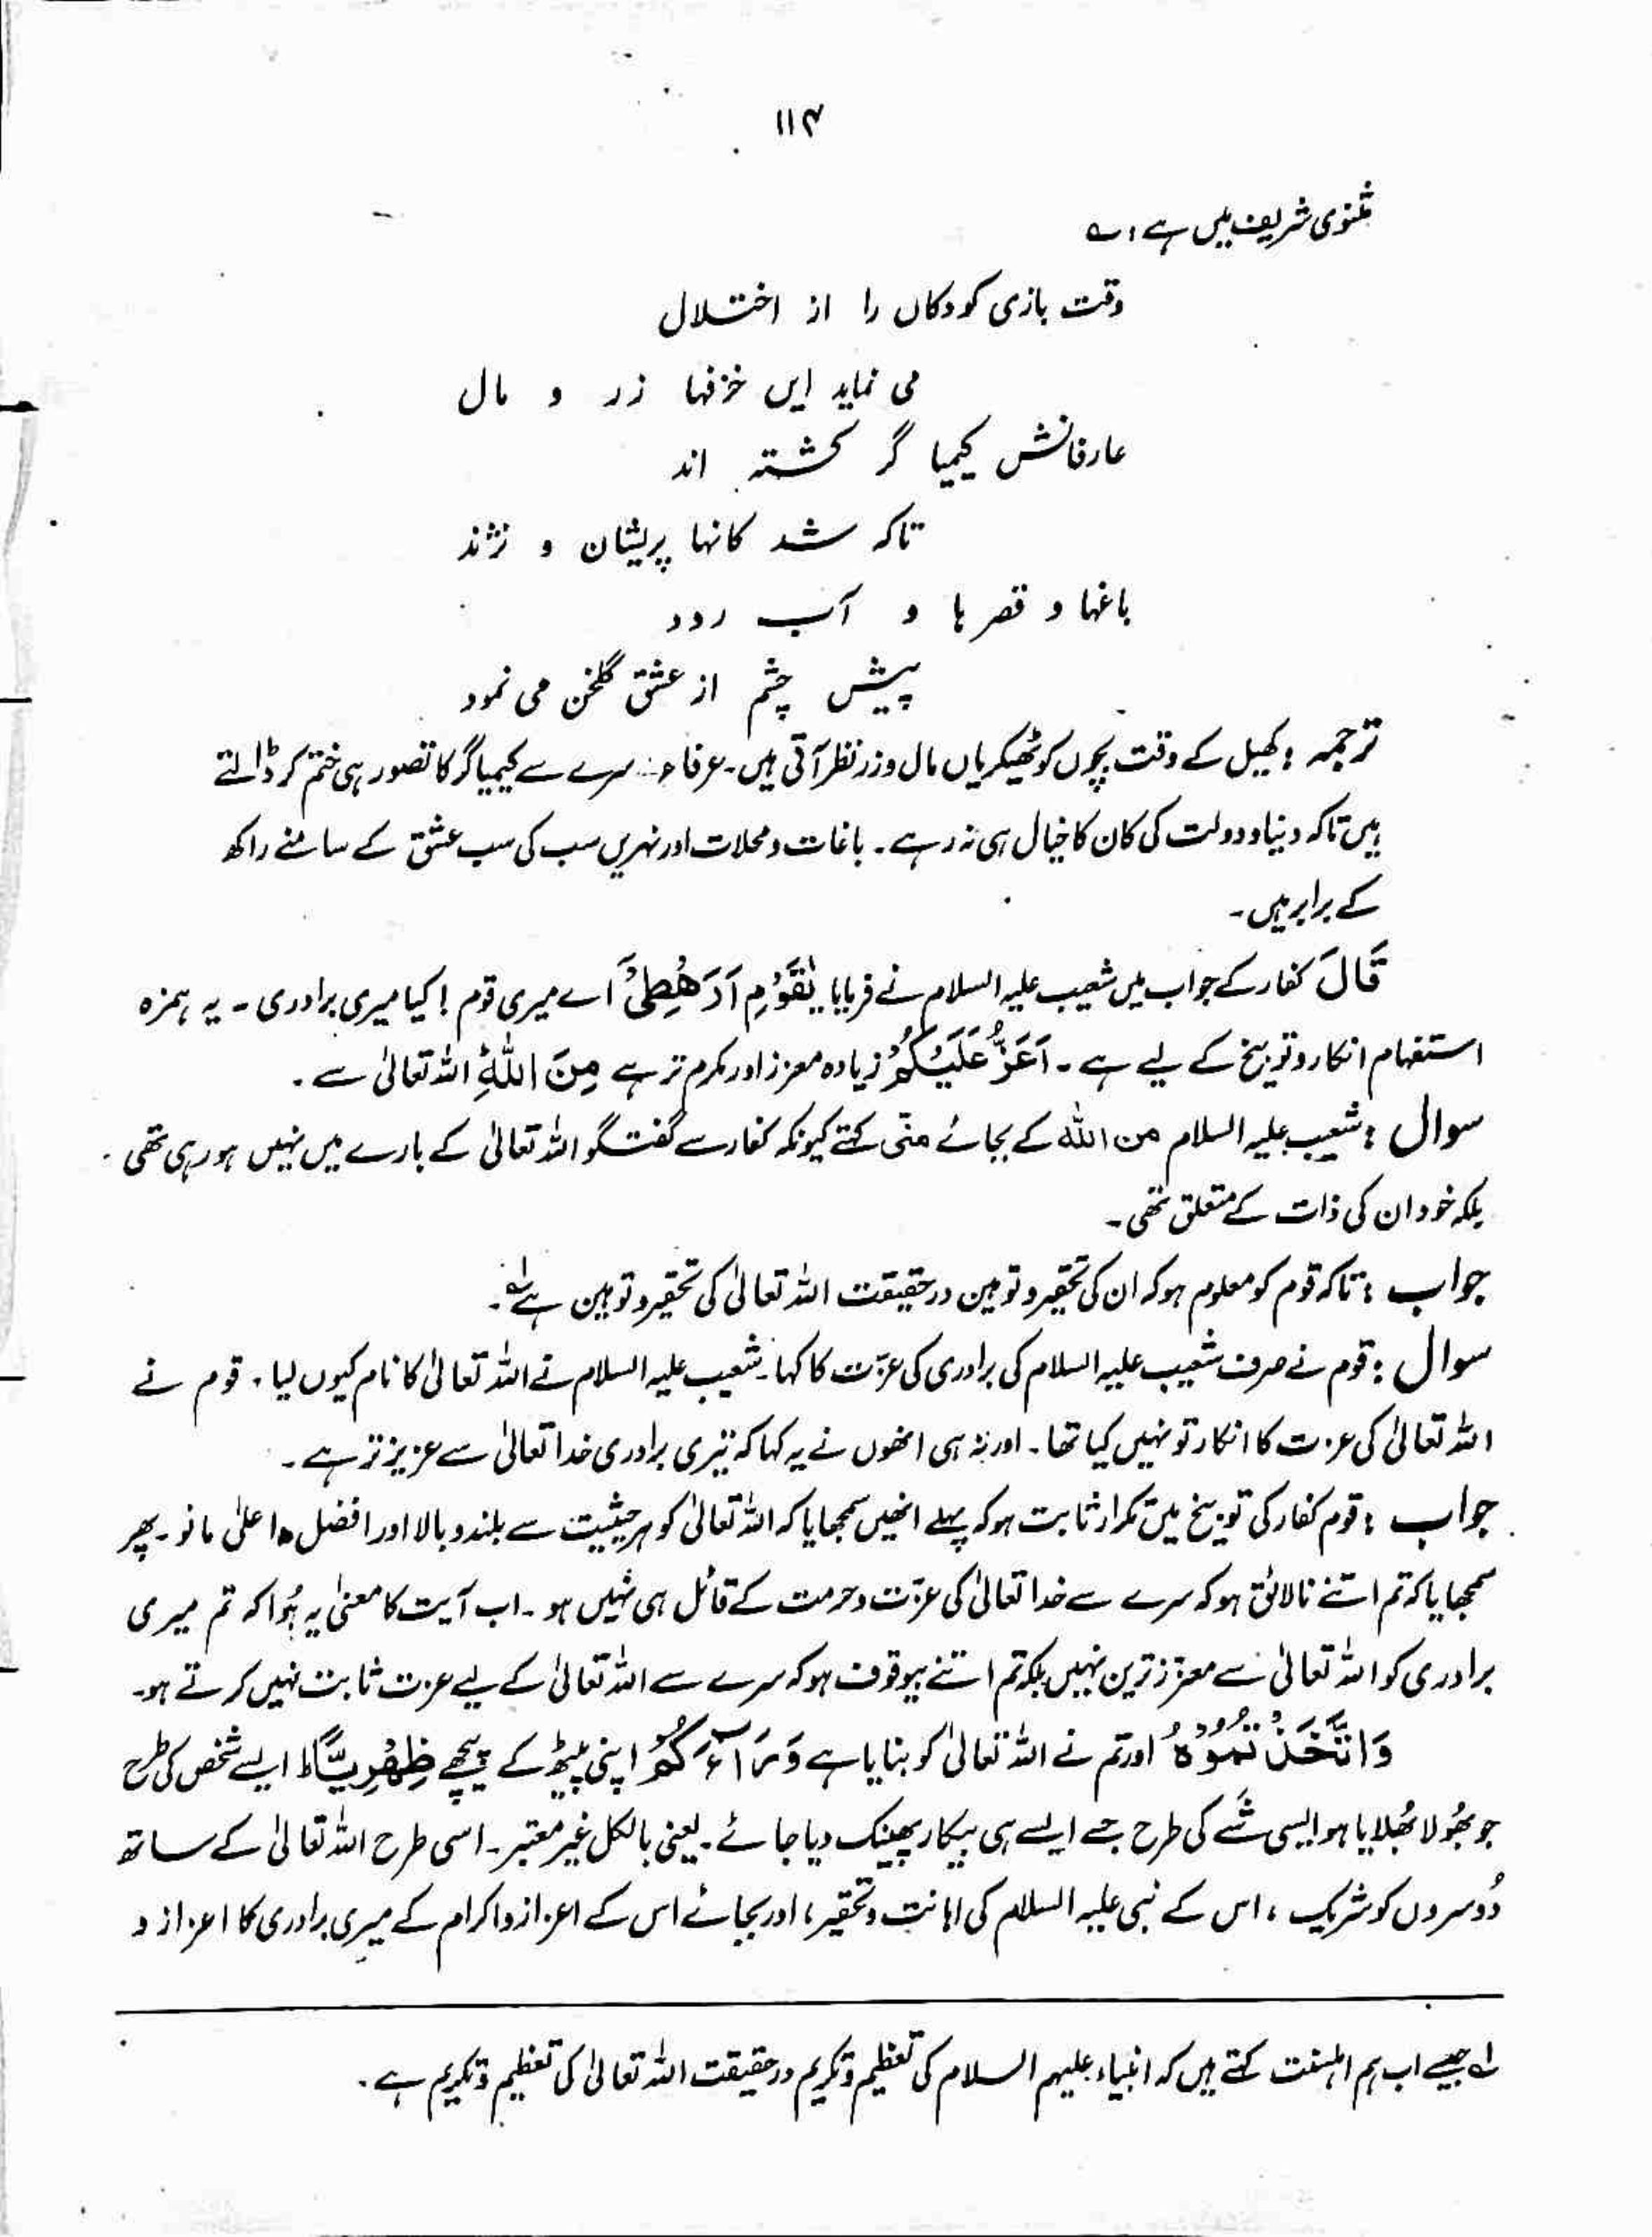 ۱۱۴
مثنوی شریف میں ہے : ؎
وقت بازی کودکاں را از اختلال
می نماید ایں خزفہا زر و مال
عارفانش کیمیا گر کشتہ اند
تاکہ شد کانہا پریشان و نژند
باغہا و قصرہا و آب رود
پیش چشم از عشق گلخن می نمود
ترجمہ : کھیل کے وقت بچوں کو ٹھیکریاں مال و زر نظر آتی ہیں۔ عرفاء سرے سے کیمیا گر کا تصور ہی ختم کر ڈالتے
ہیں تاکہ دنیا و دولت کی کان کا خیال ہی نہ رہے۔ باغات و محلات اور نہریں سب کی سب عشق کے سامنے راکھ
کے برابر ہیں۔
قَالَ کفار کے جواب میں شعیب علیہ السلام نے فرمایا یٰقَوْمِ اَرَهْطِیْۤ اے میری قوم ! کیا میری برادری ۔ یہ ہمزہ
استفہام انکار و توبیخ کے لیے ہے۔ اَعَزُّ عَلَیْکُمْ زیادہ معزز اور مکرم تر ہے مِنَ اللّٰہِ اللہ تعالیٰ سے۔
سوال : شعیب علیہ السلام من اللہ کے بجائے منّی کہتے کیونکہ کفار سے گفتگو اللہ تعالیٰ کے بارے میں نہیں ہو رہی تھی۔
بلکہ خود ان کی ذات کے متعلق تھی۔
جواب : تاکہ قوم کو معلوم ہو کہ ان کی تحقیر و توہین درحقیقت اللہ تعالیٰ کی تحقیر و توہین ہے لہ۔
سوال : قوم نے صرف شعیب علیہ السلام کی برادری کی عزّت کا کہا۔ شعیب علیہ السلام نے اللہ تعالیٰ کا نام کیوں لیا۔ قوم نے
اللہ تعالیٰ کی عزت کا انکار تو نہیں کیا تھا۔ اور نہ ہی انھوں نے یہ کہا کہ تیری برادری خدا تعالیٰ سے عزیز تر ہے۔
جواب : قوم کفار کی توبیخ میں تکرار ثابت ہو کہ پہلے انھیں سمجھایا کہ اللہ تعالیٰ کو ہر حیثیت سے بلند و بالا اور افضل و اعلیٰ مانو۔ پھر
سمجھایا کہ تم اتنے نالائق ہو کہ سرے سے خدا تعالیٰ کی عزّت و حرمت کے قائل ہی نہیں ہو۔ اب آیت کا معنیٰ یہ ہُوا کہ تم میری
برادری کو اللہ تعالیٰ سے معزز ترین نہیں بلکہ تم اتنے بیوقوف ہو کہ سرے سے اللہ تعالیٰ کے لیے عزت ثابت نہیں کرتے ہو۔
وَاتَّخَذْتُمُوْہُ اور تم نے اللہ تعالیٰ کو بنایا ہے وَرَآءَکُمْ اپنی پیٹھ کے پیچھے ظِهْرِیًّا ط ایسے شخص کی طرح
جو بھُولا بھُلایا ہو ایسی شَے کی طرح جسے ایسے ہی بیکار پھینک دیا جائے۔ یعنی بالکل غیر معتبر۔ اسی طرح اللہ تعالیٰ کے ساتھ
دُوسروں کو شریک ، اس کے نبی علیہ السلام کی اہانت و تحقیر ، اور بجائے اس کے اعزاز و اکرام کے میری برادری کا اعزاز و
لہ جیسے اب ہم اہلسنت کہتے ہیں کہ انبیاء علیہم السلام کی تعظیم و تکریم درحقیقت اللہ تعالیٰ کی تعظیم و تکریم ہے۔